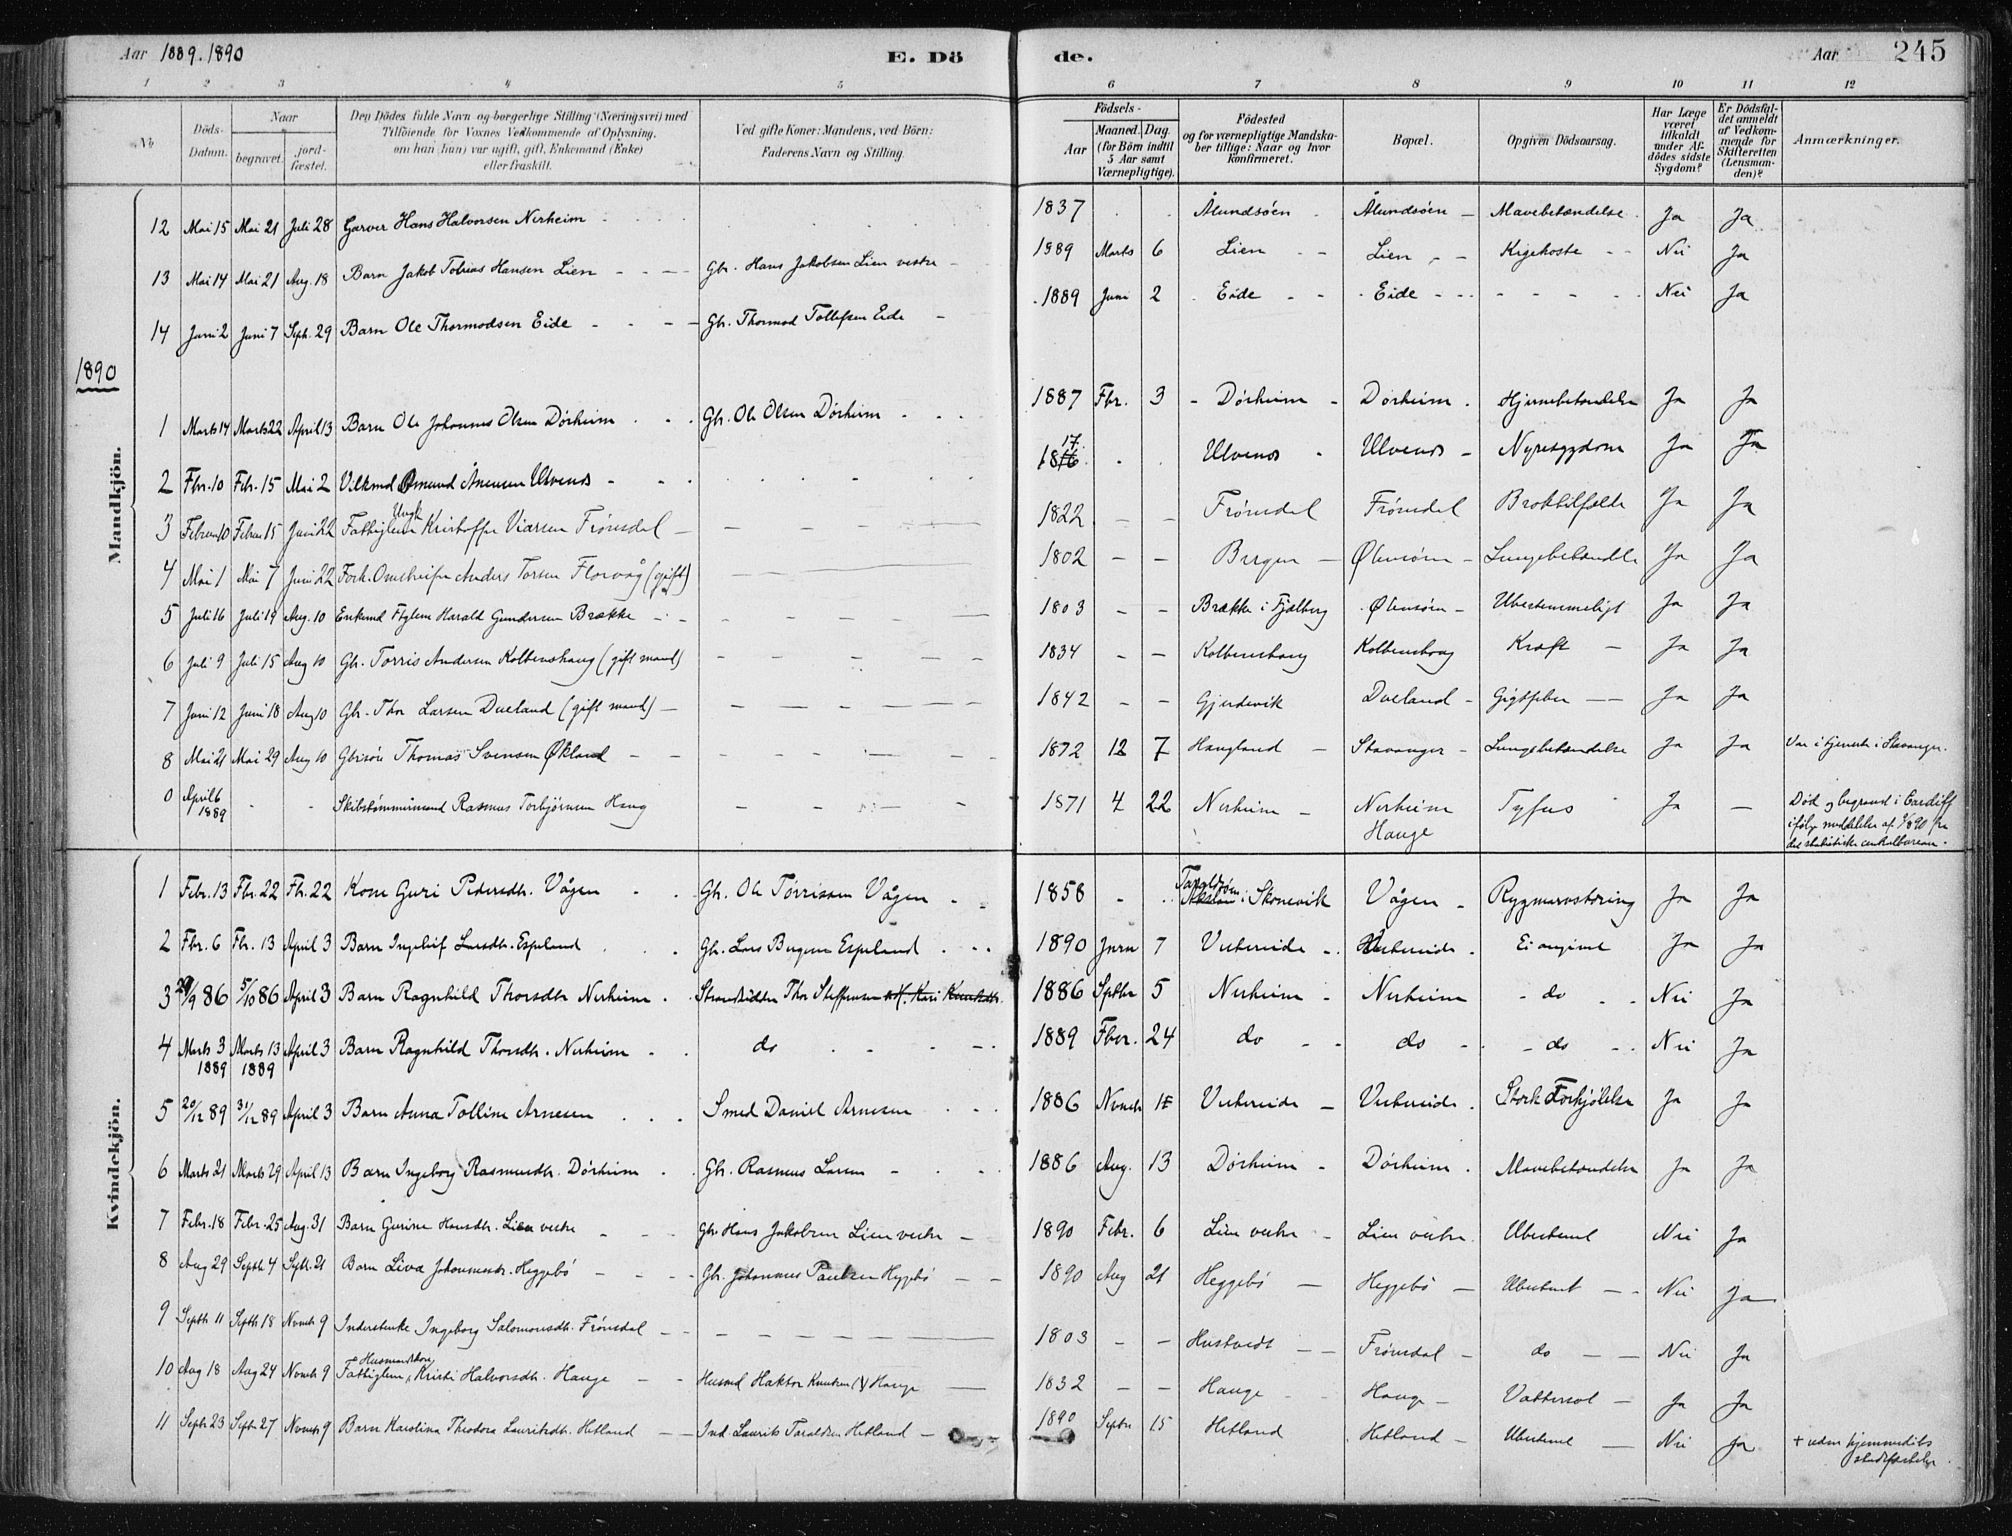 Aar 1889.1890
E. Döde.
Aar 245
1 2 3 4 5 6 7 8 9 10 11 12
No
Döds-Datum.
Naar
begravet.
jord-fæstet.
Den Dödes fulde Navn og borgerlige Stilling (Næringsvei) med
Tilföiende for Voxnes Vedkommende af Oplysning,
om han (hun) var ugift, gift, Enkemand (Enke)
eller fraskilt.
Ved gifte Koner: Mandens, ved Börn:
Faderens Navn og Stilling.
Födsels-
Aar
Maaned. Dag.
(for Börn indtil
5 Aar samt
Værnepligtige).
Födested
og for værnepligtige Mandska-
ber tillige: Naar og hvor
Konfirmeret.
Bopæl.
Opgiven Dödsaarsag.
Har Læge
været
tilkaldt
under Af-
dödes sidste
Sygdom?
Er Dödsfal-
det anmeldt
af Vedkom-
mende for
Skifteretten
(Lensman-
den)?
Anmærkninger.
12 Mai 15 Mai 21 Juli 28 Garver Hans Halvorsen Nerheim 1837 Ålundsöen Ålundsöen Mavebetændelse Ja Ja
13 Mai 14 Mai 21 Aug. 18 Barn Jakob Tobias Hansen Lien Gbr. Hans Jakobsen Lien vestre 1889 Marts 6 Lien Lien Kighoste Nei Ja
14 Juni 2 Juni 7 Septr. 29 Barn Ole Thormodsen Eide Gbr. Thormod Tollefsen Eide 1889 Juni 2 Eide Eide Nei Ja
1890
Mandkjön.
1 Marts 14 Marts 22 April 13 Barn Ole Johannes Olsen Dörheim Gbr. Ole Olsen Dörheim 1887 Fbr. 3 Dörheim Dörheim Hjernebetændelse Ja Ja
2 Fbr. 10 Febr. 15 Mai 2 Vilkmd Omund Ånensen Ulvenes 1817 Ulvenes Ulvenes Nyresygdom Ja Ja
3 Februar 10 Februar 15 Juni 22 Fattiglem Ungk. Kristoffer Viarsen Frönsdal 1822 Frönsdal Frönsdal Broktilfælde Ja Ja
4 Mai 1 Mai 7 Juni 22 Anders Torsen Florvåg (gift) 1802 Bergen Ølensöen Lungebetændelse Ja Ja
5 Juli 16 Juli 19 Aug. 10 Enkemd Harald Gundersen Brække 1803 Brække i Fjelberg Ølensöen Ubestemmeligt Ja Ja
6 Juli 9 Juli 15 Aug 10 Gbr. Torris Andersen Kolbenshaug (gift mand) 1834 Kolbenshaug Kolbenshaug Kræft Ja Ja
7 Juni 12 Juni 18 Aug 10 Gbr. Thor Larsen Dueland (gift mand) 1842 Gjerdevik Dueland Gigtfeber Ja Ja
8 Mai 21 Mai 29 Aug 10 Gbrsön Thomas Svensen Økland 1872 12 7 Haugland Stavanger Lungebetændelse Ja Ja Var i tjeneste i Stavanger.
0 April 6 1889 Skibstömmermand Rasmus Torbjörnsen Haug 1871 4 22 Nerheim Nerheim Hauge Tyfus Ja Död og begraved i Cardiff
ifölge meddelelse af 90 fra
det statistiske centralbureau.
Kvindekjön.
1 Febr. 13 Fbr. 22 Fbr. 22 Kone Guri Pedersdtr. Vågen Gbr. Ole Törrissen Vågen 1858 Skonevik Vågen Rygmarvstæring Ja Ja
2 Fbr. 6 Fbr. 13 April 3 Barn Ingeleif Larsdtr. Espeland Gbr. Lars Espeland 1890 Janu 7 Vestereide Vestereide Ei angivet Ja Ja
3 29/9 86 5/10 86 April 3 Barn Ragnhild Thorsdtr Nerheim Strandsidder Thor Steffensen 1886 Septbr 5 Nerheim Nerheim do Nei Ja
4 Marts 3 1889 Marts 13 1889 April 3 Barn Ragnhild Thorsdtr. Nerheim do 1889 Fbr. 24 do do do Nei Ja
5 20/12 89 31/12 89 April 3 Barn Anna Tolline Arnesen Smed Daniel Arnesen 1886 Novmb Vestereide Vestereide Sterk Forkjölelse Ja Ja
6 Marts 21 Marts 29 April 13 Barn Ingeborg Rasmusdtr. Dörheim Gbr. Rasmus Larsen 1886 Aug. 13 Dörheim Dörheim Mavebetændelse Ja Ja
7 Febr. 18 Febr. 25 Aug. 31 Barn Gurine Hansdtr. Lien vestre Gbr. Hans Jakobsen Lien vestre 1890 Febr. 6 Lien vestre Lien vestre Ubestemt Nei Ja
8 Aug 29 Septb 4 Septb. 21 Barn Liva Johannesdtr. Heggebö Gbr. Johannes Paulsen Heggebö 1890 Aug 21 Heggebö Heggebö Ubestemt Nei Ja
9 Septb 11 Septb 18 Novmb 9 Inderstenke Ingeborg Salomonsdtr. Frönsdal 1803 Hustvedt Frönsdal do Nei Ja
10 Aug 18 Aug 24 Novmb 9 Fattiglem, Husmandskone Kristi Halvorsdtr. Hauge Husmd Haktor Knutsen Hauge 1832 Hauge Hauge Vattersot Ja Ja
11 Septr 23 Septr 27 Novmb 9 Barn Karolina Theodora Lauritsdtr. Hetland Ind. Laurits Taraldsen Hetland 1890 Septbr 15 Hetland Hetland Ubestemt Nei Ja + uden hjemmedåbs
stadfæstelse.